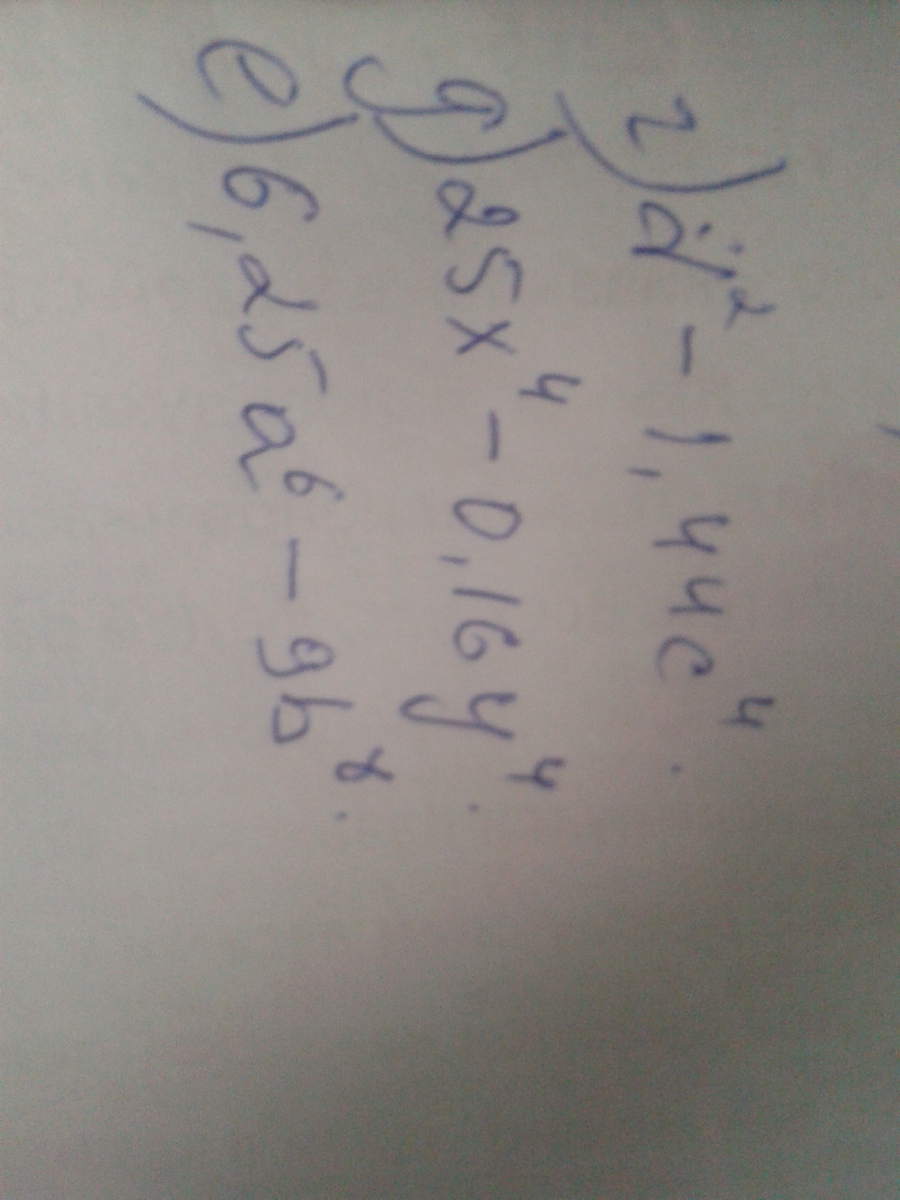 г) a² - 1,44c⁴.
д) 25x⁴ - 0,16y⁴.
е) 6,25a⁶ - 9b⁸.